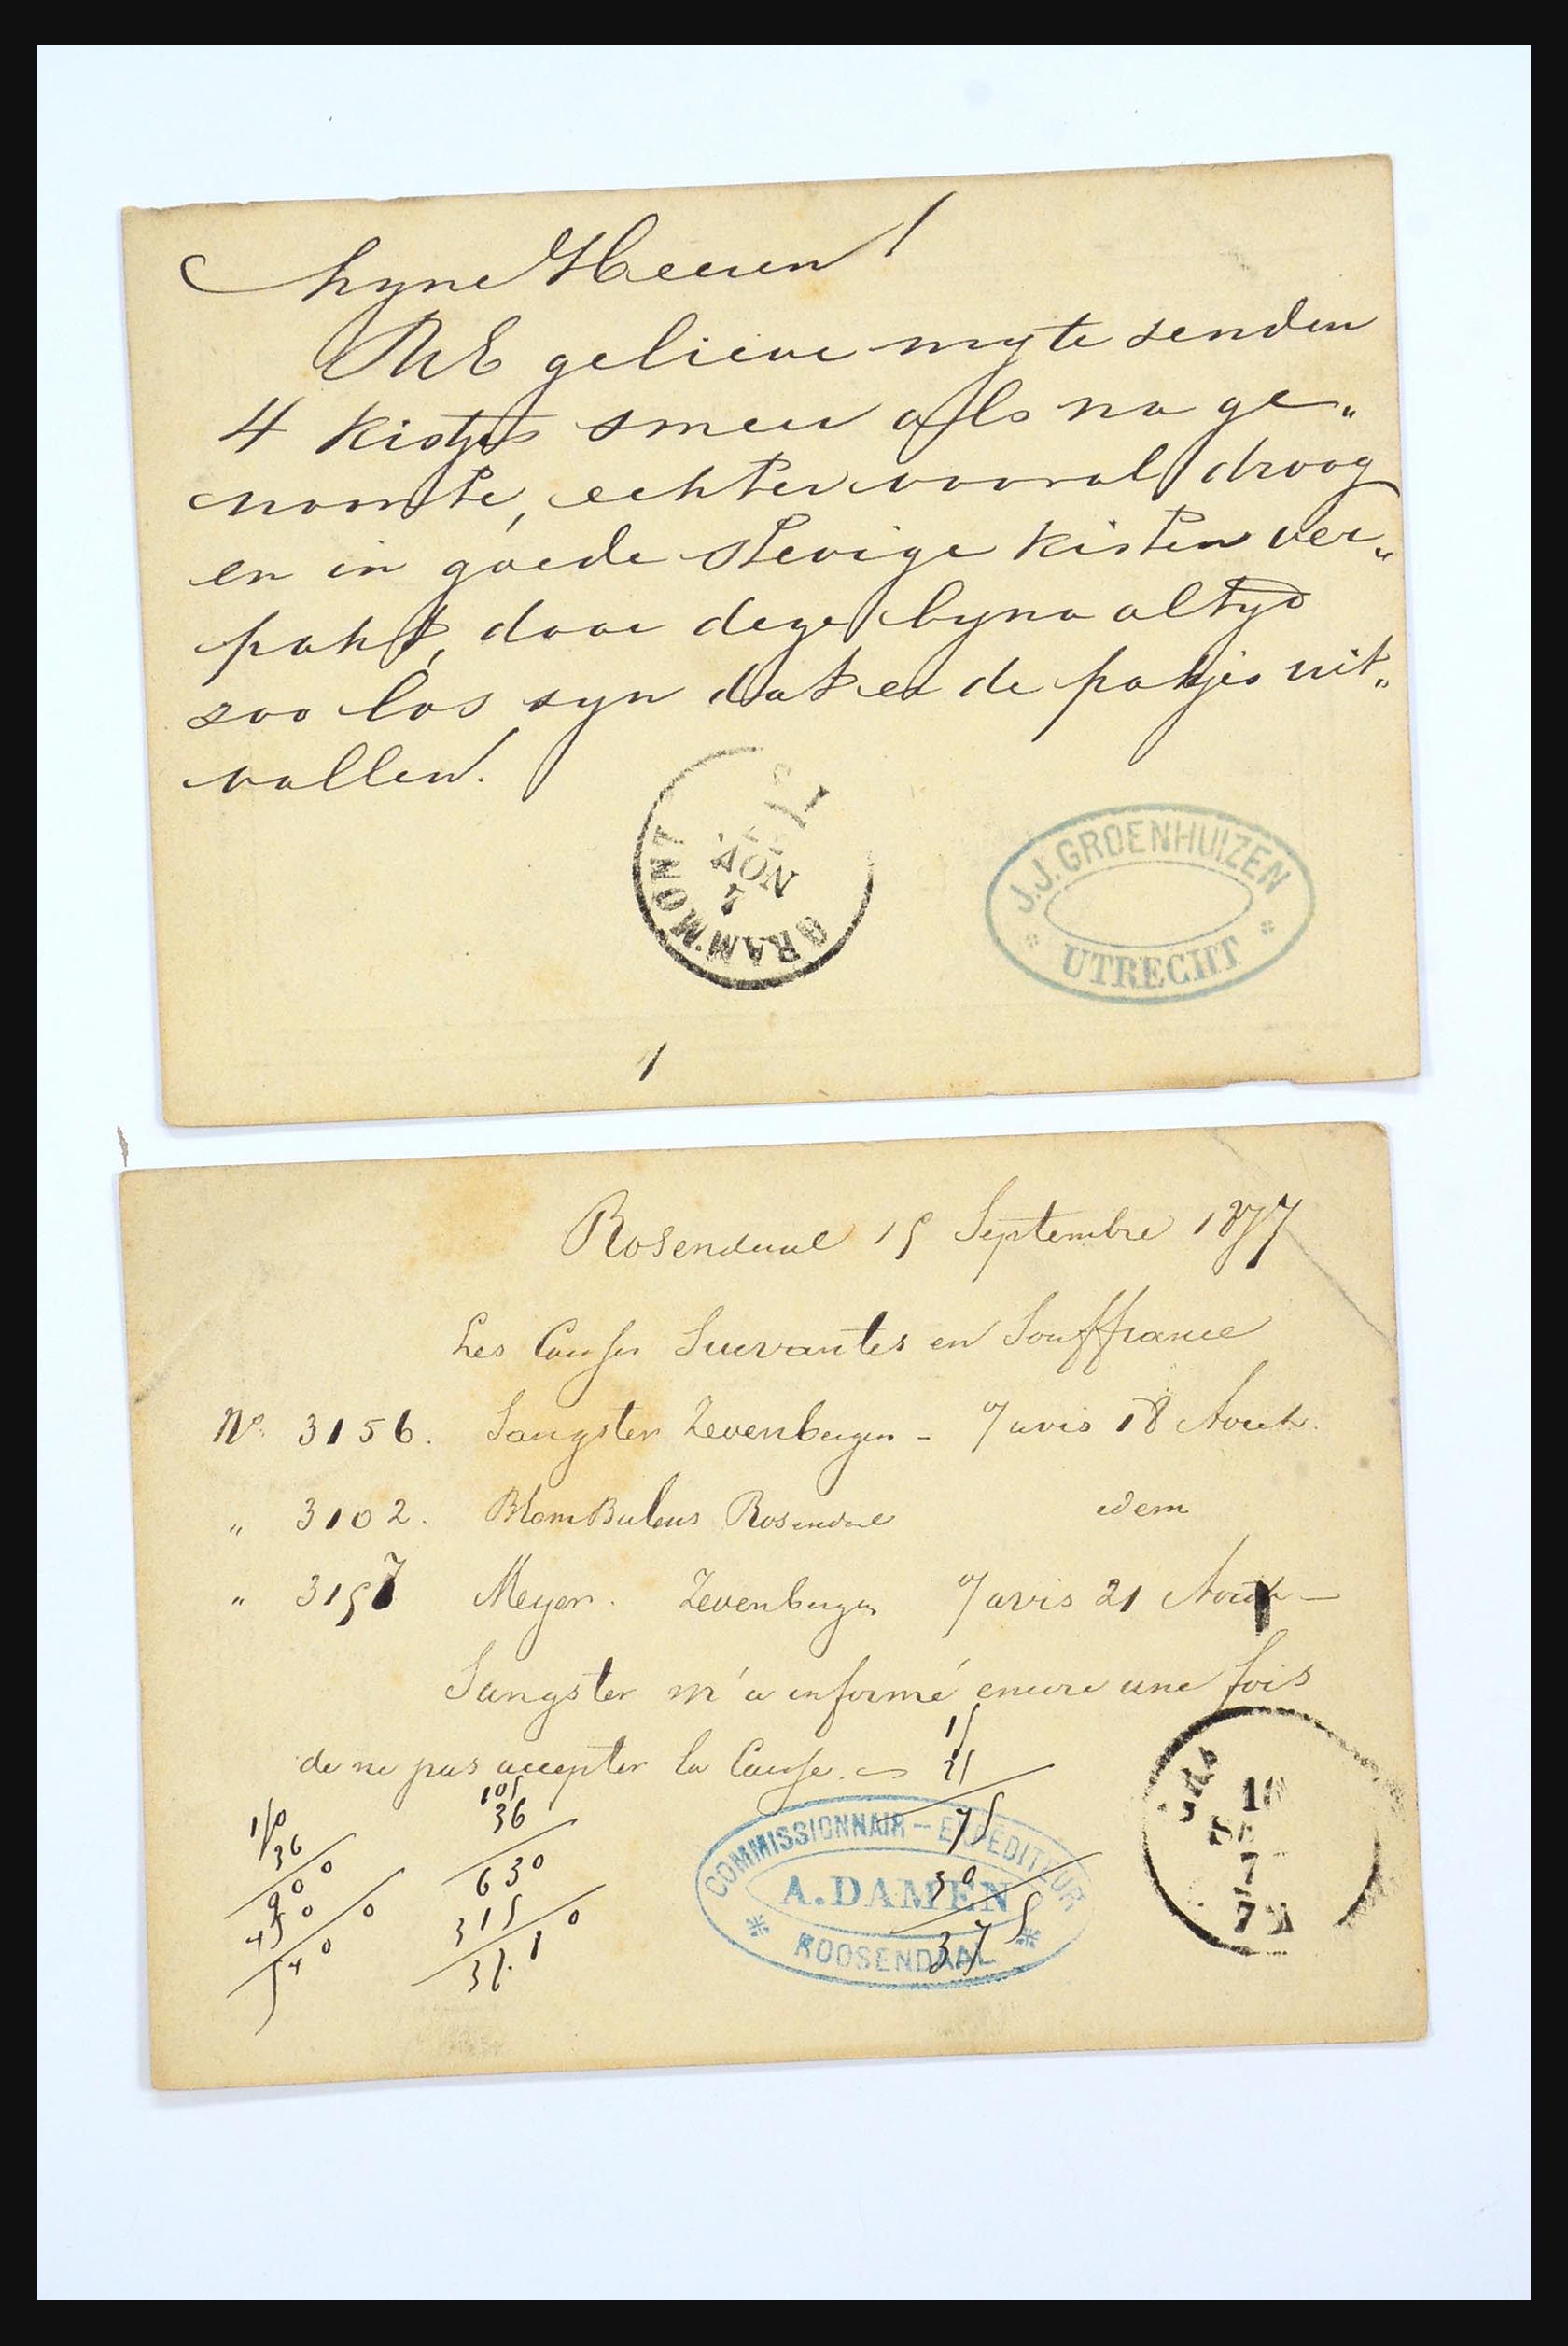 Myne Heeren!
UE gelieve my te senden
4 kistjes smeer als na ge„
noomte, echter vooral droog
en in goede stevige kisten ver„
pakt, daar deze byna altyd
zoo los syn dat er de pakjes uit„
vallen.
GRAMMONT
7
NOV.
J.J. GROENHUIZEN
UTRECHT
1
Rosendaal 15 Septembre 1877
Les Caisses Suivantes en Souffrance
No. 3156. Sangster Zevenbergen - avis 18 Aout.
„ 3102. Rosendael idem
„ 3157 Meyer. Zevenbergen avis 21 Aout —
Sangster m'a informé encore une fois
de ne pas accepter la Caisse.
15
25
75
30
375
150
36
900
450
5400
105
36
630
315
COMMISSIONNAIR - EXPEDITEUR
A. DAMEN
ROOSENDAAL
16
7